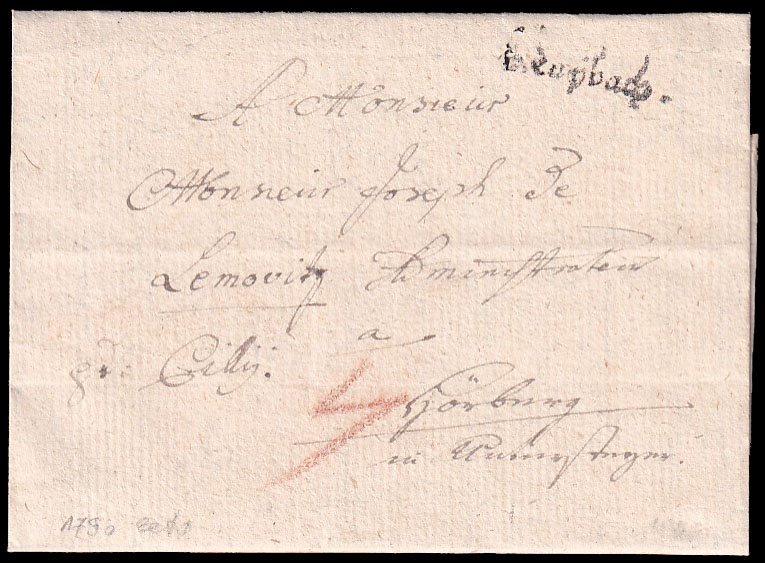 A Monsieur
Monsieur Joseph De
Lemovitz Administrateur
a
pr. Cilly.
Hörburg
in Untersteyer.
1790